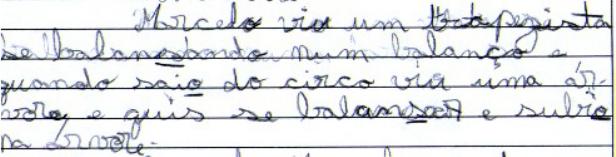 Marcelo viu um trapezista
se balansando num balanço e
quando saio do circo viu uma ár-
vore e quis se balansar e subio
na árvore.